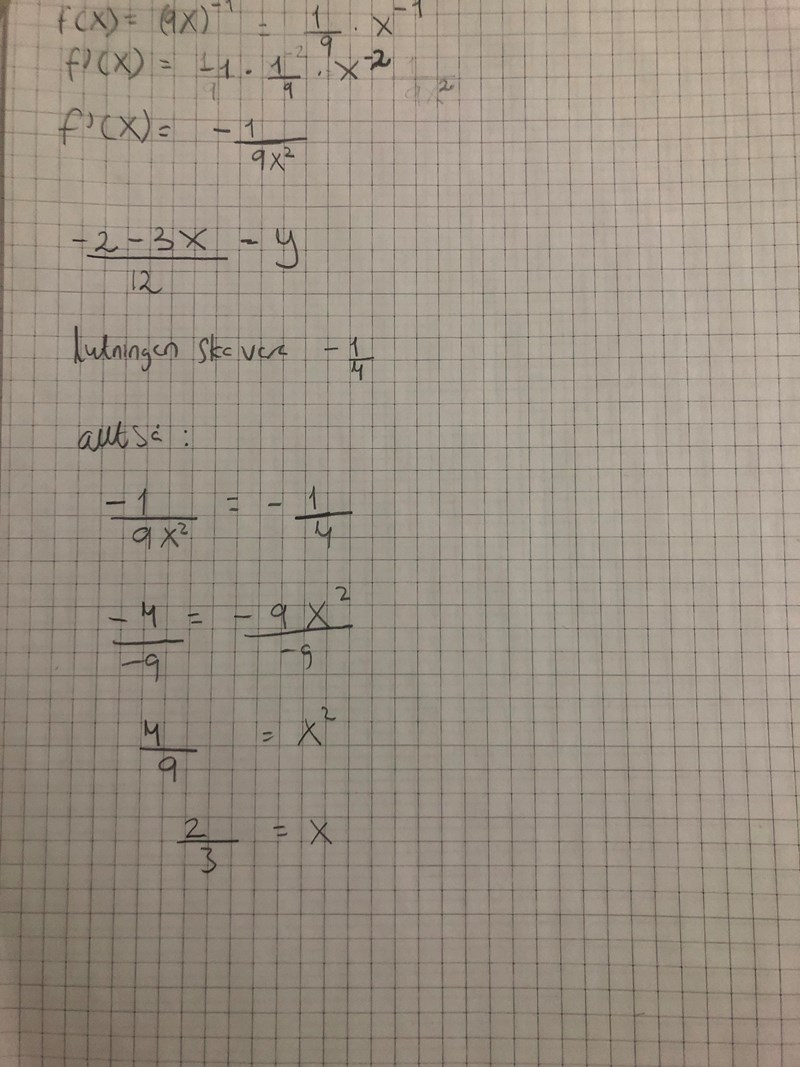 f(x) = (9x)^-1 = 1/9 · x^-1
f'(x) = -1 · 1/9 · x^-2
f'(x) = -1/9x^2
-2-3x/12 = y
lutningen ska vara -1/4
alltså:
-1/9x^2 = -1/4
-4/-9 = -9x^2/-9
4/9 = x^2
2/3 = x